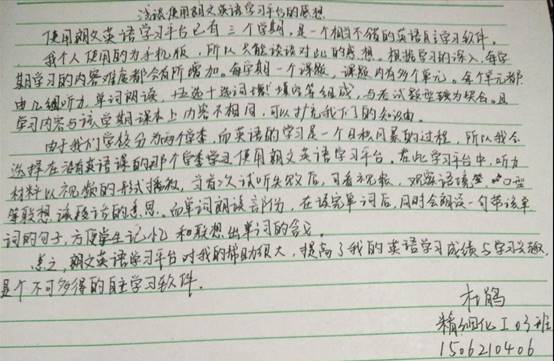 浅谈使用朗文英语学习平台的感想
使用朗文英语学习平台已有三个学期,是一个相当不错的英语自主学习软件。
我个人使用的为手机版,所以只能谈谈对此的感想。根据学习的深入,每学
期学习的内容难度都会有所增加。每学期一个课题,课题内有多个单元。每个单元都
由几组听力、单词朗读、五选十选词填填空等组成,与考试题型较为契合。且
学习内容与该学期课本上内容不相同,可以扩充我们的知识面。
由于我们学校分为两个学季,而英语的学习是一个日积月累的过程,所以我会
选择在没有英语课的那个学季学习使用朗文英语学习平台。在此学习平台中,听力
材料以视频的形式播放,当首次试听失败后,可看视频,观察语境、口型
等联想该段话的意思。而单词朗读部分,在读完单词后,同时会朗读一句带该单
词的句子,方便学生记忆和联想出单词的含义。
总之,朗文英语学习平台对我的帮助很大,提高了我的英语学习成绩与学习兴趣,
是个不可多得的自主学习软件。
杜鹃
精细化I 03班
1506210406